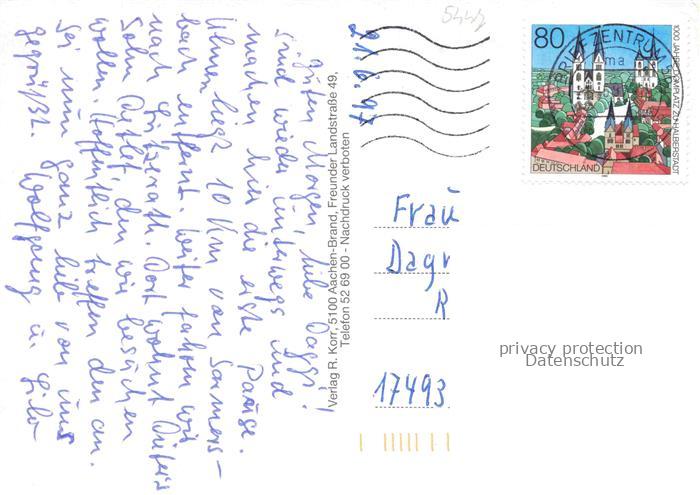 Guten Morgen, liebe Daggi!
sind wieder unterwegs und
machen hier die erste Pause.
Ulmen liegt 10 Km von
bach entfernt. Weiter fahren wir
nach Lutzerath. Dort wohnt
Sohn Detlef, den wir besuchen
wollen. Hoffentlich treffen den an.
Sei nun ganz lieb von uns
gegrüßt. Wolfgang u.
Verlag R. Korr, 5100 Aachen-Brand, Freunder Landstraße 49,
Telefon 52 69 00 - Nachdruck verboten
21.6.97
80
1000 JAHRE DOMPLATZ ZU HALBERSTADT
DEUTSCHLAND
BRIEFZENTRUM
ma
Frau
Dagr
R
17493
privacy protection
Datenschutz